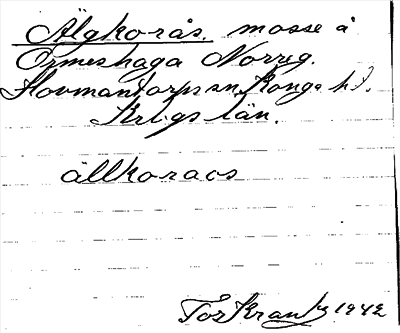 Älgkorås, mosse å
Ormeshaga Norreg.
Hovmantorps sn. Konga hd.
Krbgs län.
ällkoracs
Tor Krantz 1942